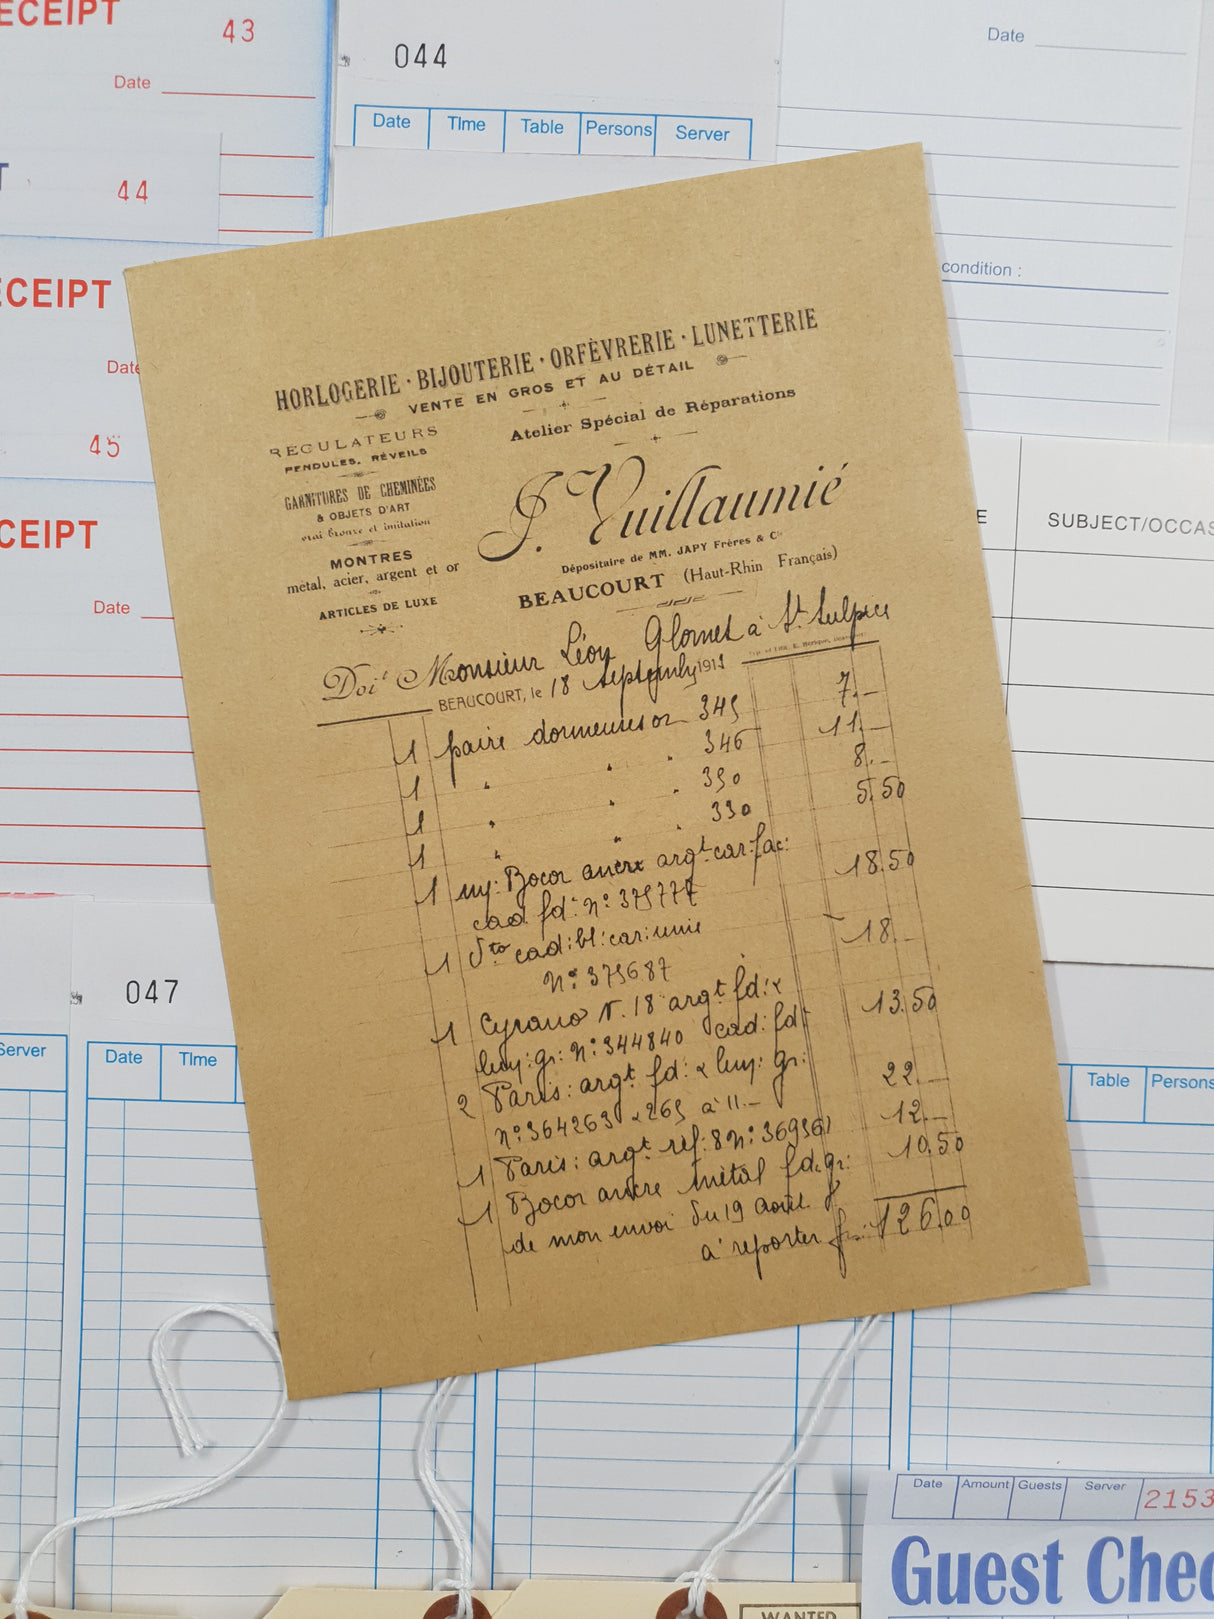 ECEIPT
43
Date
044
Date Time Table Persons Server
Date
44
ECEIPT
Date
45
condition :
CEIPT
Date
E
SUBJECT/OCCAS
HORLOGERIE · BIJOUTERIE · ORFÈVRERIE · LUNETTERIE
VENTE EN GROS ET AU DÉTAIL
Atelier Spécial de Réparations
RÉGULATEURS
PENDULES, RÉVEILS
GARNITURES DE CHEMINÉES
& OBJETS D'ART
vrai bronze et imitation
MONTRES
métal, acier, argent et or
ARTICLES DE LUXE
J. Vuillaumié
Dépositaire de MM. JAPY Frères & Cie
BEAUCOURT (Haut-Rhin Français)
Doit Monsieur Léon Glomet à St Sulpice
BEAUCOURT, le 18 septembre 1911
1 paire dormeuses or 345 7.—
1 " " " 346 11.—
1 " " " 350 8.—
1 " " " 330 5.50
1 Bocor ancre argt car: fac: 18.50
cad fdt No: 375777
1 dto cad: bl: car: unie 18.—
No: 375687
1 Cyrano N. 18 argt fd: & 13.50
No: 344840 cad: fdt
2 Paris: argt fd: & gr: 22.—
No: 364263 & 265 à 11.—
1 Paris: argt réf: 8 No: 12.—
1 Bocor ancre métal fd: gr: 10.50
de mon envoi du 19 août
à reporter 126,00
047
Server
Date Time
Table Persons
Date Amount Guests Server 2153
Guest Chec
WANTED